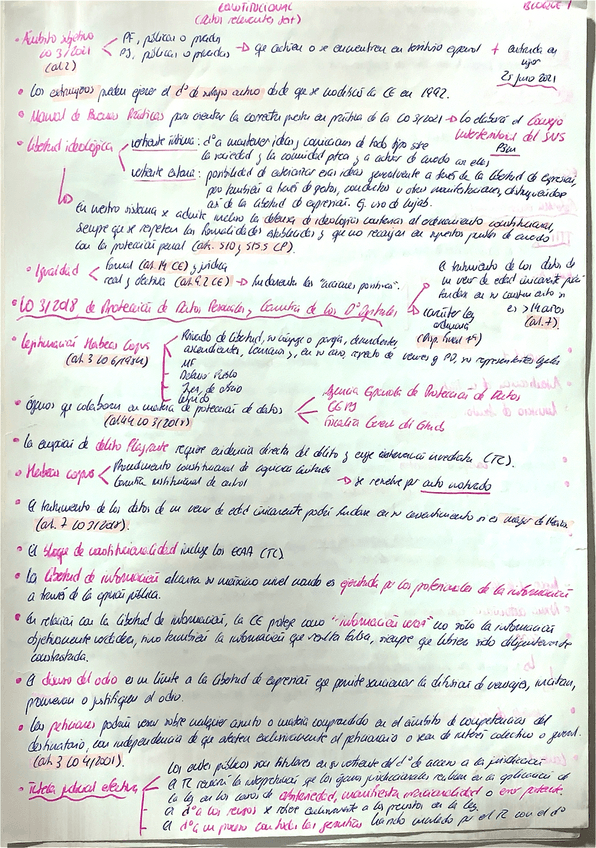 CONSTITUCIONAL
BLOQUE 1
(Datos relevantes test)
• Ámbito subjetivo
LO 3/2021
(art. 2)
PF, públicas o privadas
PJ, públicas o privadas → que actúen o se encuentren en territorio español + entrada en vigor
25 junio 2021
• Los extranjeros pueden ejercer el dº de sufragio activo desde que se modificó la CE en 1992.
• Manual de Buenas Prácticas para orientar la correcta puesta en práctica de la LO 3/2021 → Lo elabora el Consejo
Interterritorial del SNS
• Libertad ideológica
vertiente interna: dº a mantener ideas y convicciones de todo tipo sobre
la sociedad y la comunidad pca y a actuar de acuerdo con ellas
vertiente externa: posibilidad de exteriorizar esas ideas generalmente a través de la libertad de expresión,
pero también a través de gestos, conductas u otras manifestaciones, distinguiéndose
así de la libertad de expresión. Ej. uso de lazos.
En nuestro sistema se admite incluso la defensa de ideologías contrarias al ordenamiento constitucional,
siempre que se respeten las formalidades establecidas y que no recaigan en supuestos penales de acuerdo
con la protección penal (art. 510 y 515.5 CP).
• Igualdad
formal (art. 14 CE) y jurídica
real y efectiva (art. 9.2 CE) → fundamenta las "acciones positivas".
• LO 3/2018 de Protección de Datos Personales y Garantía de los Dº Digitales
→ carácter ley
ordinaria
(Disp. final 1ª)
El tratamiento de los datos de
un menor de edad únicamente podrá
fundarse en su consentimiento si
es > 14 años
(art. 7)
• Legitimación Habeas Corpus
(art. 3 LO 6/1984)
Privado de libertad, su cónyuge o pareja, descendientes,
ascendientes, hermanos y, en su caso, respecto de menores y PD, sus representantes legales
MF
Defensor Pueblo
Juez, de oficio
• Órganos que colaboran en materia de protección de datos
(art. 44 LO 3/2018)
Agencia Española de Protección de Datos
CGPJ
Fiscalía General del Estado
• La excepción de delito flagrante requiere evidencia directa del delito y exige intervención inmediata (TC).
• Habeas corpus
Procedimiento constitucional de cognición limitada
Garantía institucional de control
→ se resuelve por auto motivado
• El tratamiento de los datos de un menor de edad únicamente podrá fundarse en su consentimiento si es mayor de 14 años
(art. 7 LO 3/2018).
• El bloque de constitucionalidad incluye los EEAA (TC)
• La libertad de información alcanza su máximo nivel cuando es ejercitada por los profesionales de la información
a través de la opinión pública.
• En relación con la libertad de información, la CE protege como "información veraz" no sólo la información
objetivamente verdadera, sino también la información que resulta falsa, siempre que hubiera sido diligentemente
contrastada.
• El discurso del odio es un límite a la libertad de expresión que permite sancionar la difusión de mensajes, inciten,
promuevan o justifiquen el odio.
• Las peticiones podrán versar sobre cualquier asunto o materia comprendido en el ámbito de competencias del
destinatario, con independencia de que afecten exclusivamente al peticionario o sean de interés colectivo o general.
(art. 3 LO 4/2001).
• Tutela judicial efectiva
Los entes públicos son titulares en su vertiente del dº de acceso a la jurisdicción
El TC revisará la interpretación que los órganos jurisdiccionales realicen en la aplicación de
la ley en los casos de arbitrariedad, manifiesta irrazonabilidad o error patente.
El dº a los recursos se rige exclusivamente a los previstos en la ley.
El dº a un proceso con todas las garantías por el TC con el dº